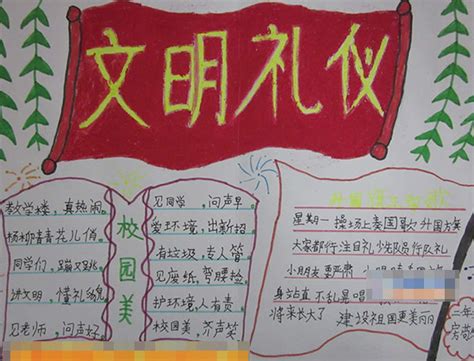 文明礼仪
教学楼，真热闹。
杨柳青青花儿俏
同学们，蹦又跳
讲文明，懂礼貌
见老师，问声好
校园美
见同学，问声早
爱环境，出新招
有垃圾，专人管
见废纸，弯腰捡
护环境，人有责
校园美，齐声笑
升国旗
星期一 操场上奏国歌 升国旗
大家都行注目礼 少先队员行队礼
小朋友要严肃
身站直 不乱晃
将来长大了 建设祖国更美丽
三年